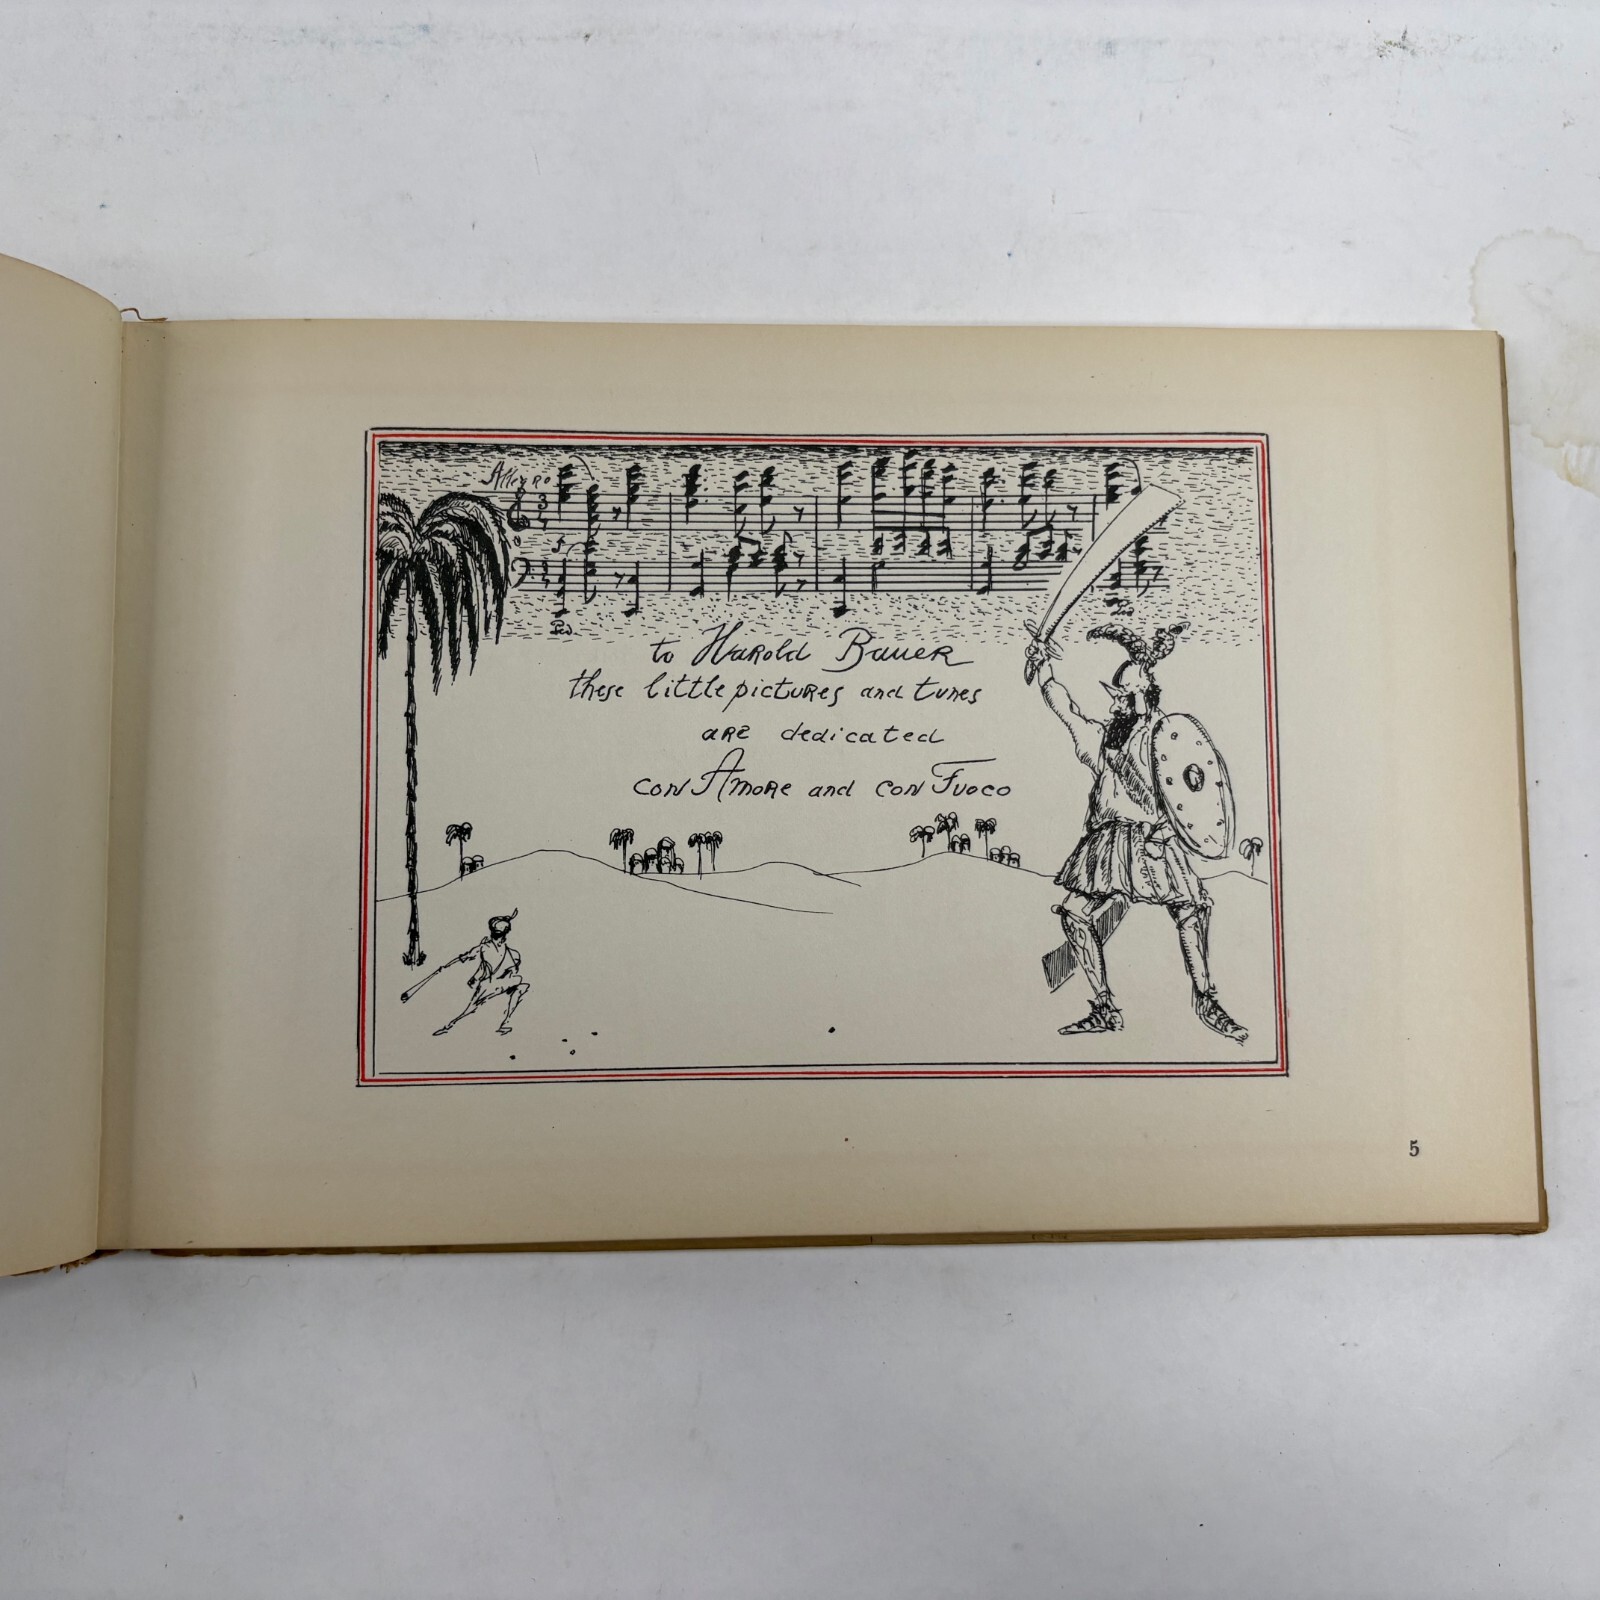 Allegro
Ped.
Ped
to Harold Bauer
these little pictures and tunes
are dedicated
con Amore and con Fuoco
5